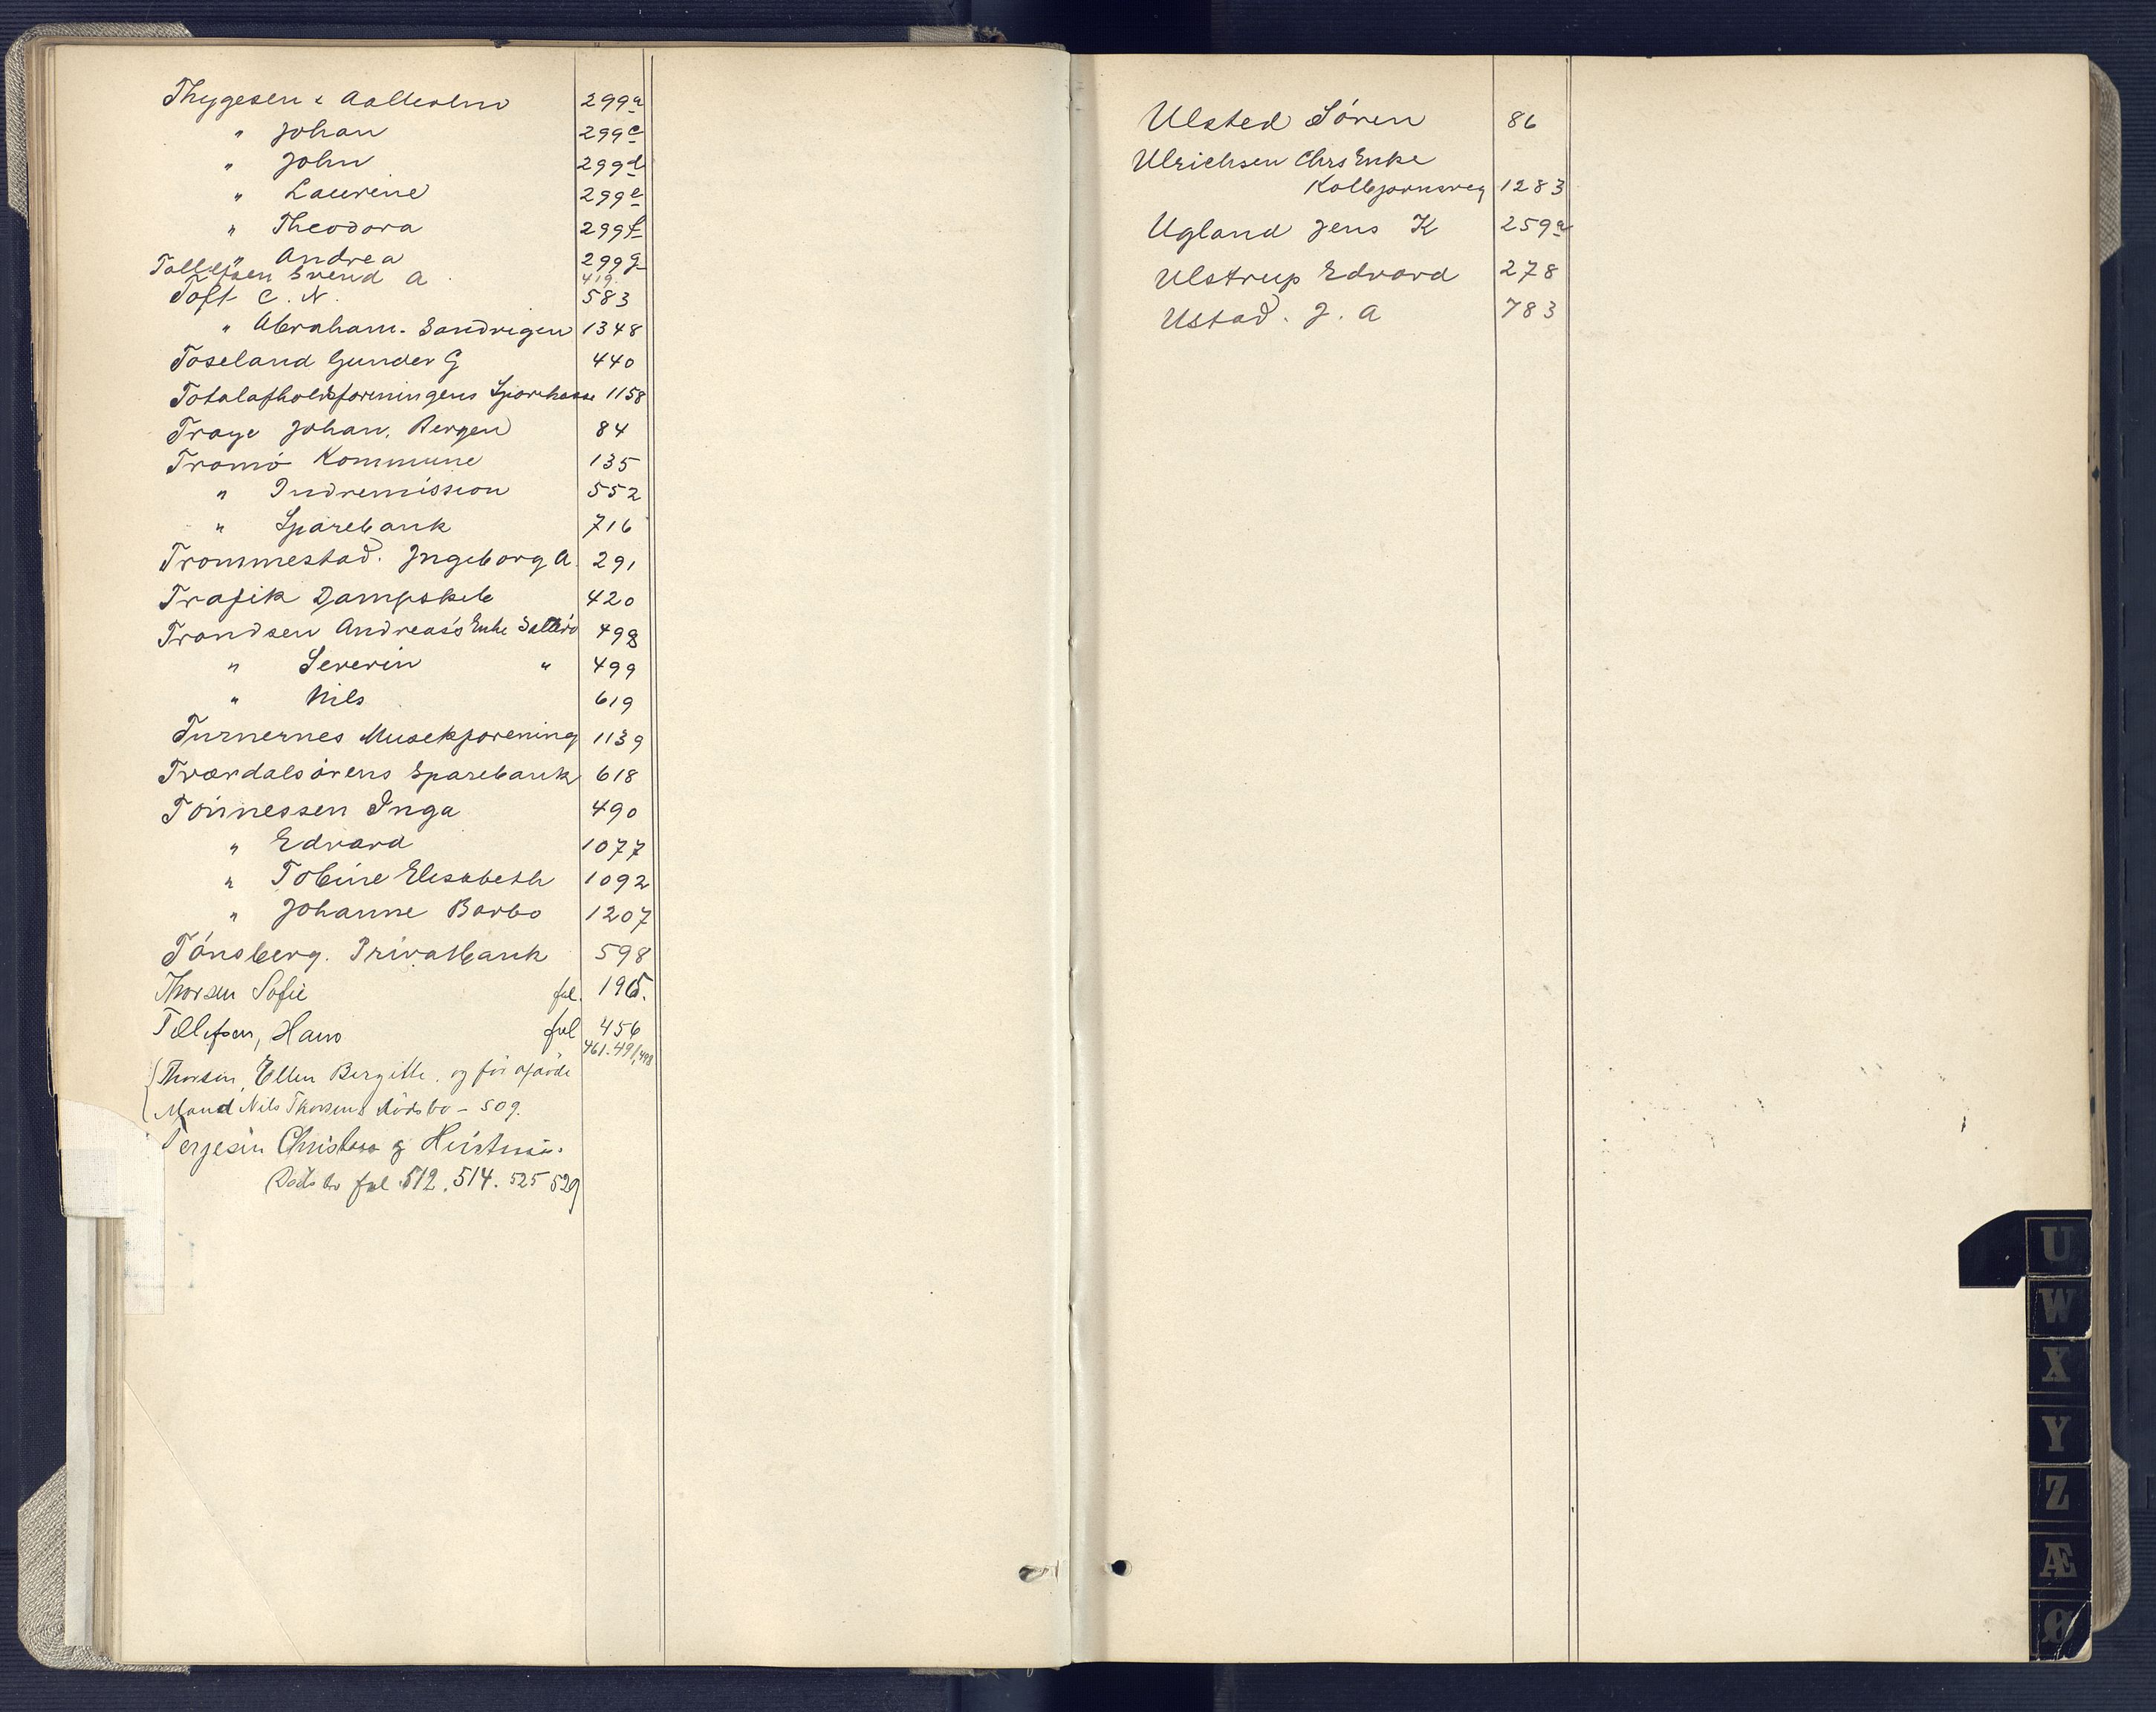 Thygesen & Aalholm 299a
" Johan 299c
" John 299d
" Laurine 299e
" Theodora 299f
" Andrea 299g
Tallefsen Svend A 419.
Toft C. N. 583
" Abraham. Sandvigen 1348
Toseland Gunder G 440
Totalafholdsforeningens Sparekasse 1158
Traye Johan, Bergen 84
Tromö Kommune 135
" Indremission 552
" Sparebank 716
Trommestad. Ingeborg A. 291
Trafik Dampskib 420
Trondsen Andreas's Enke Salteröd 498
" Severin " 499
" Nils 619
Turnernes Musikforening 1139
Værdalsörens Sparebank 618
Tönnessen Inga 490
" Edvard 1077
" Tobine Elisabeth 1092
" Johanne Barbo 1207
Tönsberg. Privatbank 598
Thorsen Sofie fol. 195.
Tellefsen, Hans fol 456
461. 491, 498
Thorsen, Ellen Bergitte. og för afdöde
Mand Nils Thorsens dödsbo - 509.
Terjesen Christian og Hustrus
Dödsbo fol. 512. 514. 525 529
Ulsted Sören 86
Ulrichsen Chrs Enke
Kolbjørnsvig 1283
Ugland Jens K 259a
Ulstrup Edvard 278
Ustad. J. A 783
U
W
X
Y
Z
Æ
Ø